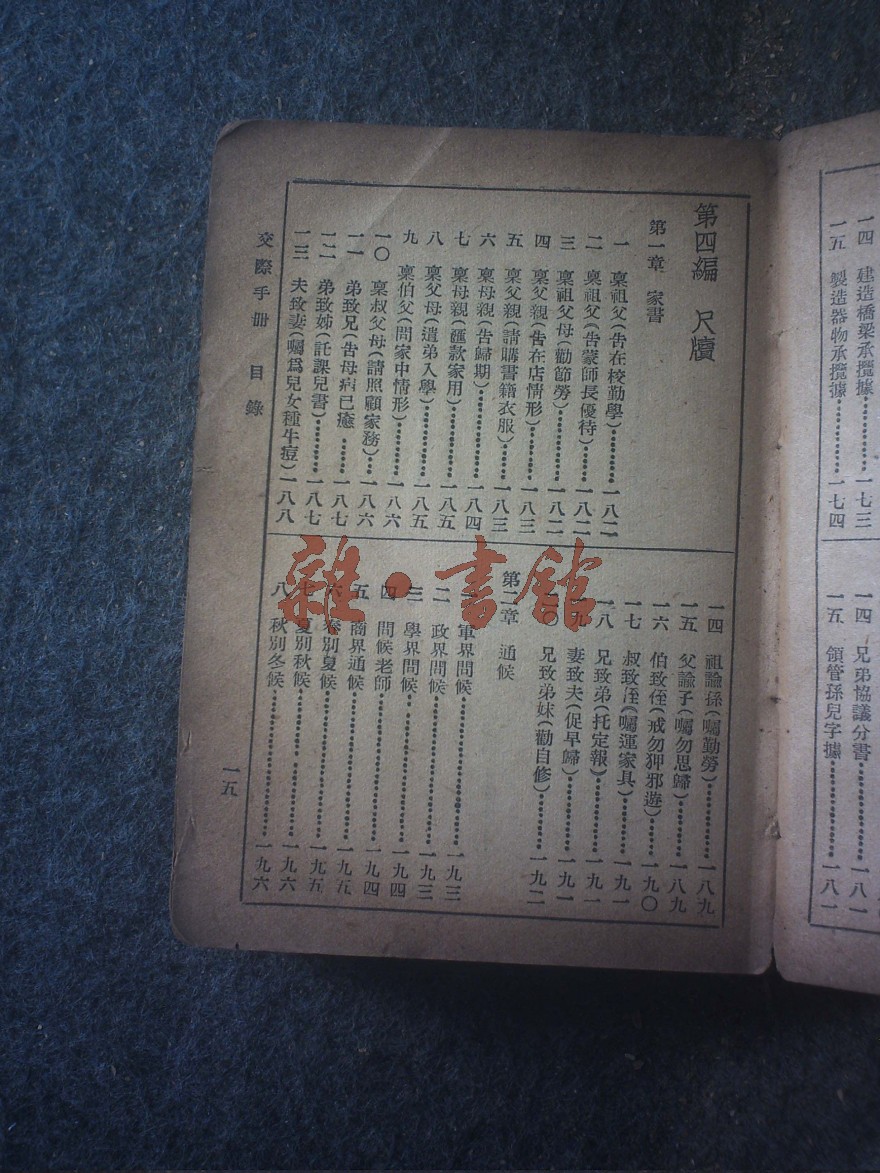 一四　建造橋梁承攬據………一七三
一五　製造器物承攬據………一七四
一四　兄弟協議分書………一八一
一五　領管孫兒字據………一八一
第四編　尺牘
第一章　家書
一　稟祖父(告在校勤學)………一八二
二　稟祖父(告蒙師長優待)………一八二
三　稟祖父母(勸節勞)………一八二
四　稟父親(告在店情形)………一八三
五　稟父親(請購書籍衣服)………一八三
六　稟母親(告歸期)………一八四
七　稟母親(匯款家用)………一八五
八　稟父母(遣弟入學)………一八五
九　稟伯父(問家中情形)………一八六
一〇　稟叔父母(請照顧家務)………一八六
一一　弟致兄(告母病已癒………一八七
一二　弟致姊(託課兒書)………一八七
一三　夫致妻(囑爲兒女種牛痘)一八八
一四　祖諭孫(囑勤勞)………一八九
一五　父諭子(囑勿思歸)………一八九
一六　伯致侄(戒勿狎邪遊)………一九〇
一七　叔致侄(囑運家具)………一九一
一八　兄致弟(托定報)………一九一
一九　妻致夫(促早歸)………一九一
二〇　兄致弟妹(勸自修)………一九二
第二章　通候
一　軍界問候………一九三
二　政界問候………一九三
三　學界問候………一九四
四　問候老師………一九四
五　商界通候………一九五
六　春別夏候………一九五
七　夏別秋候………一九六
八　秋別冬候………一九六
交際手冊　目錄
一五
雜·書館